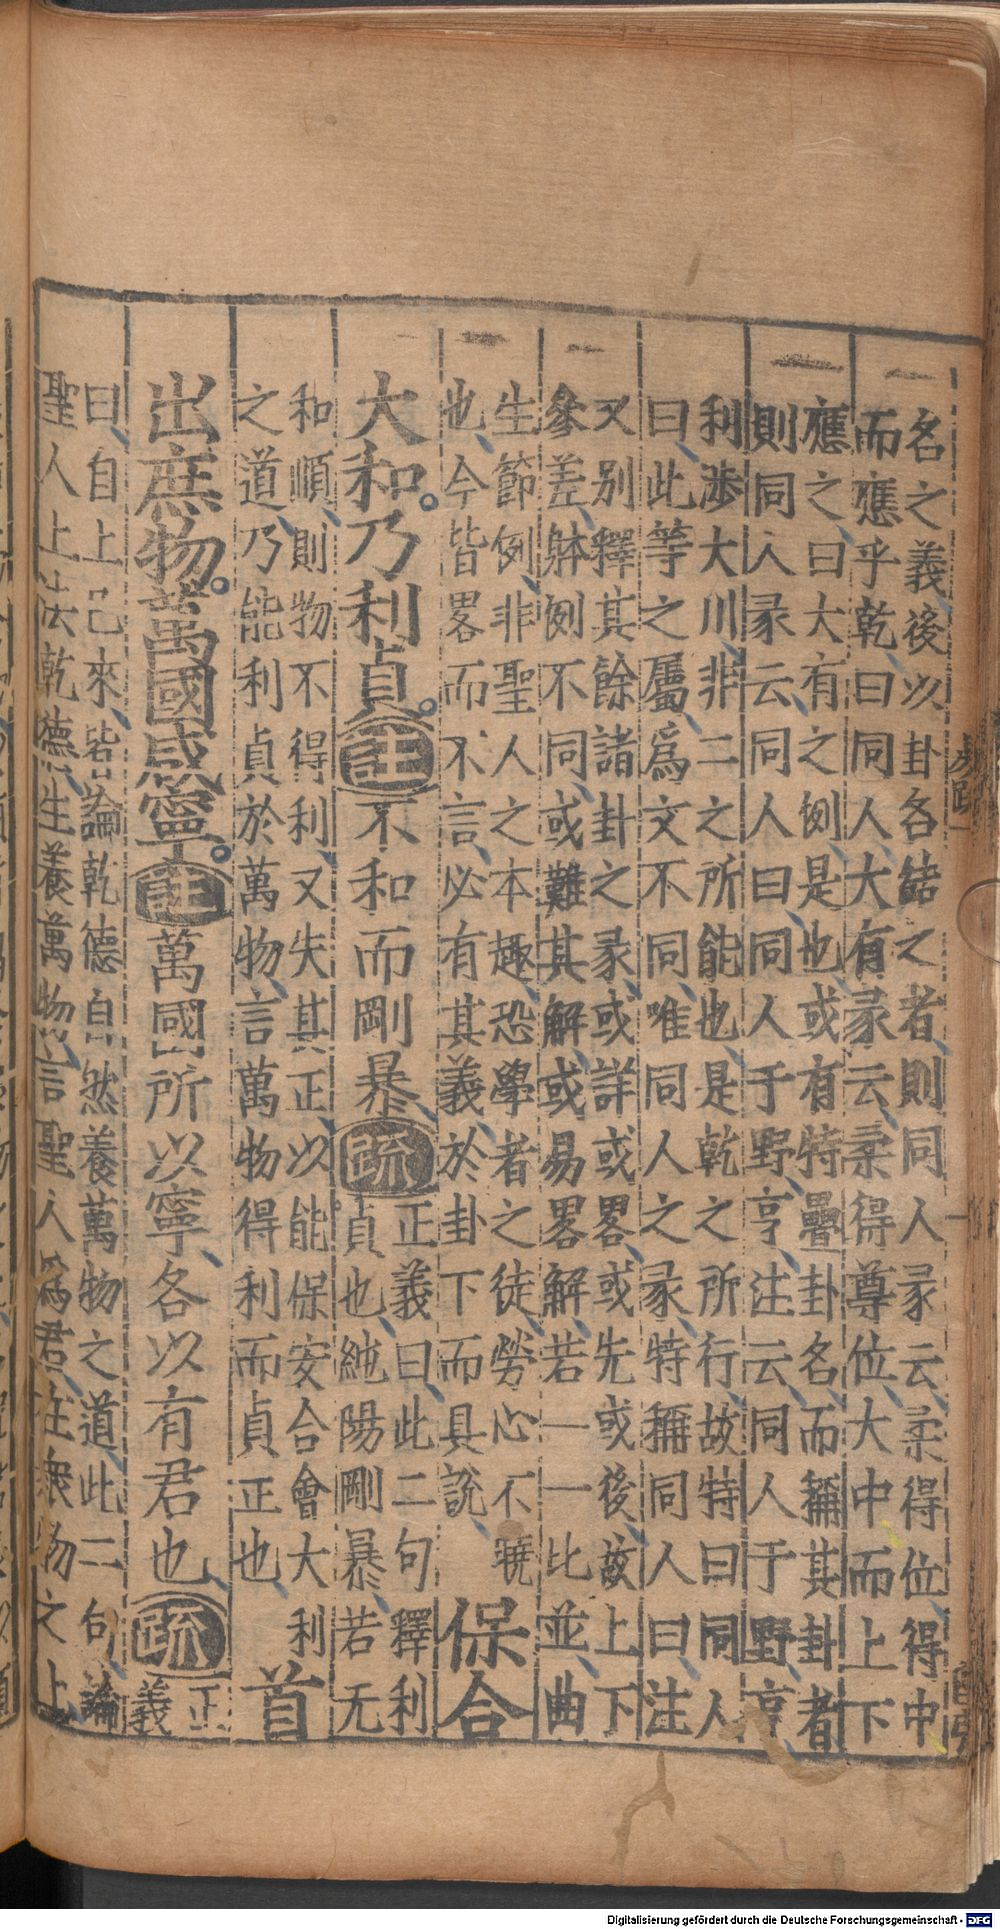 名之義後以卦名結之者則同人彖云柔得位得中
而應乎乾曰同人大有彖云柔得尊位大中而上下
應之曰大有之例是也或有特疊卦名而稱其卦者
則同人彖云同人曰同人于野亨注云同人于野亨
利涉大川非二之所能也是乾之所行故特曰同人
曰此等之屬為文不同唯同人之彖特稱同人曰注
又別釋其餘諸卦之彖或詳或畧或先或後故上下
參差躰例不同或難其解或易畧解若一一比並曲
生節例非聖人之本趣恐學者之徒勞心不曉
也今皆畧而不言必有其義於卦下而具說
保合
大和。乃利貞。註不和而剛暴疏
正義曰此二句釋利
貞也純陽剛暴若无
和順則物不得利又失其正以能保安合會大利
之道乃能利貞於萬物言萬物得利而貞正也
首
出庶物。萬國咸寧。註萬國所以寧各以有君也疏
正
義
曰自上已來皆論乾德自然養萬物之道此二句論
聖人上法乾德生養萬物言聖人為君在衆物之上
Digitalisierung gefördert durch die Deutsche Forschungsgemeinschaft - DFG